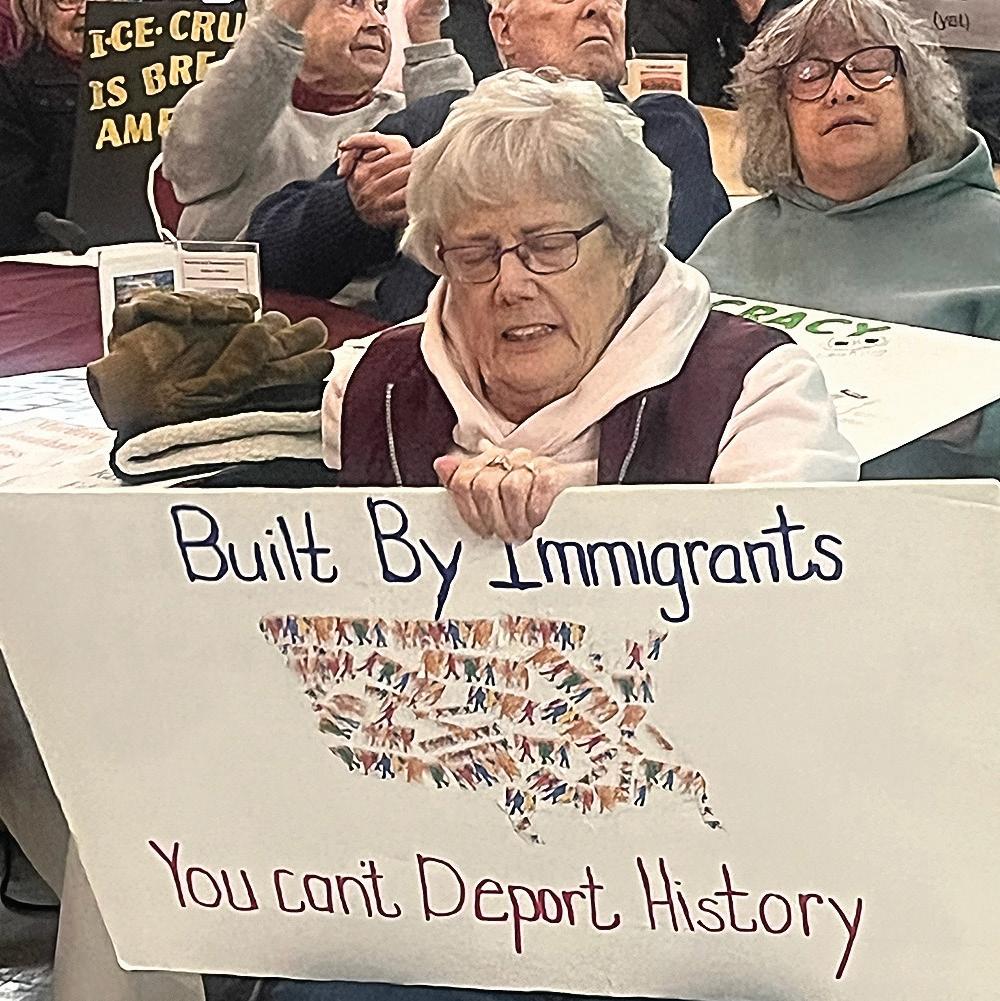 I·CE·CRU
IS BRE
AME
CRACY
Built By Immigrants
You can't Deport History